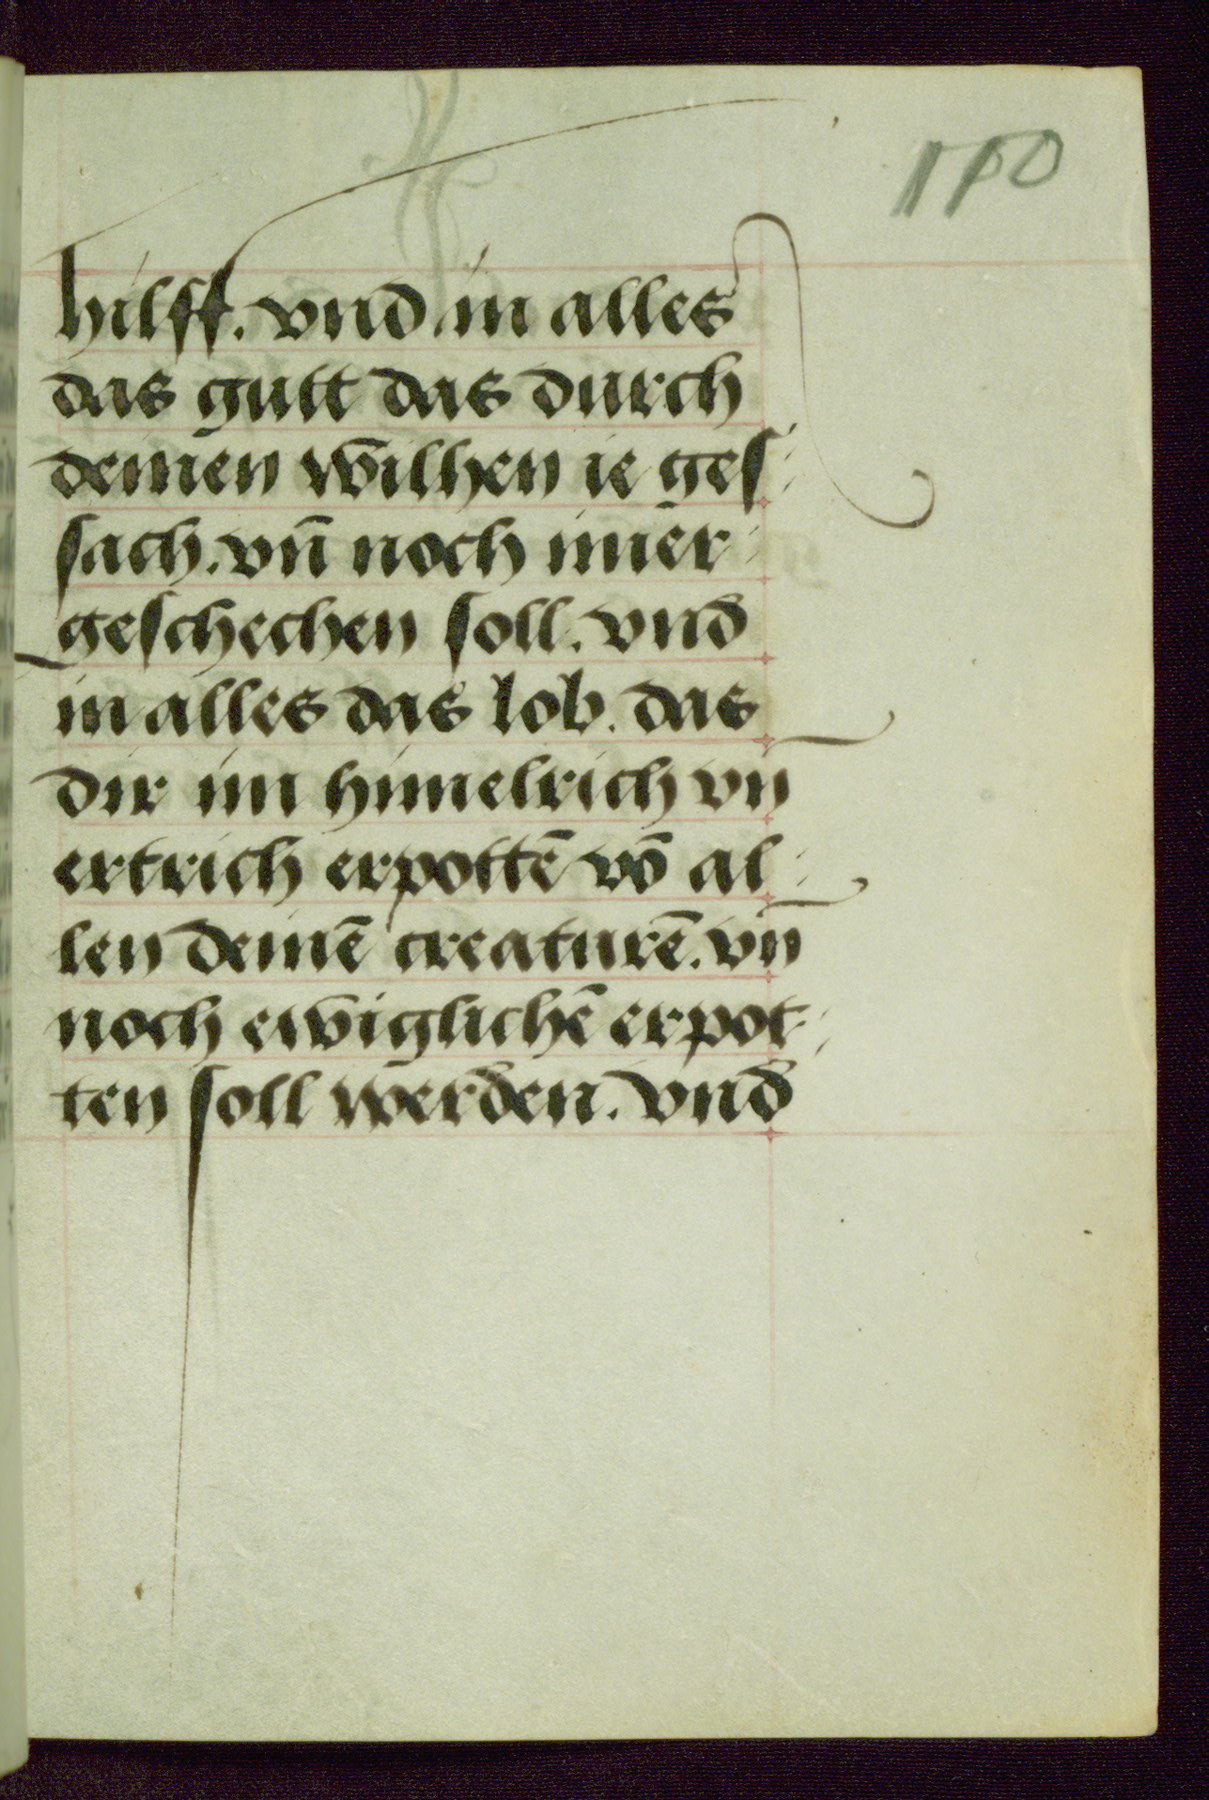 hilff. vnd in alles
das gutt das durch
deinen willen ie gesſ
ſach. vn̄ noch im̄er
geſchechen ſoll. vnd
in alles das lob. das
dir im himelrich vn̄
ertrich erpottē vō al
len deinē creaturē. vn̄
noch ewiglichē erpot
ten ſoll werden. vnd